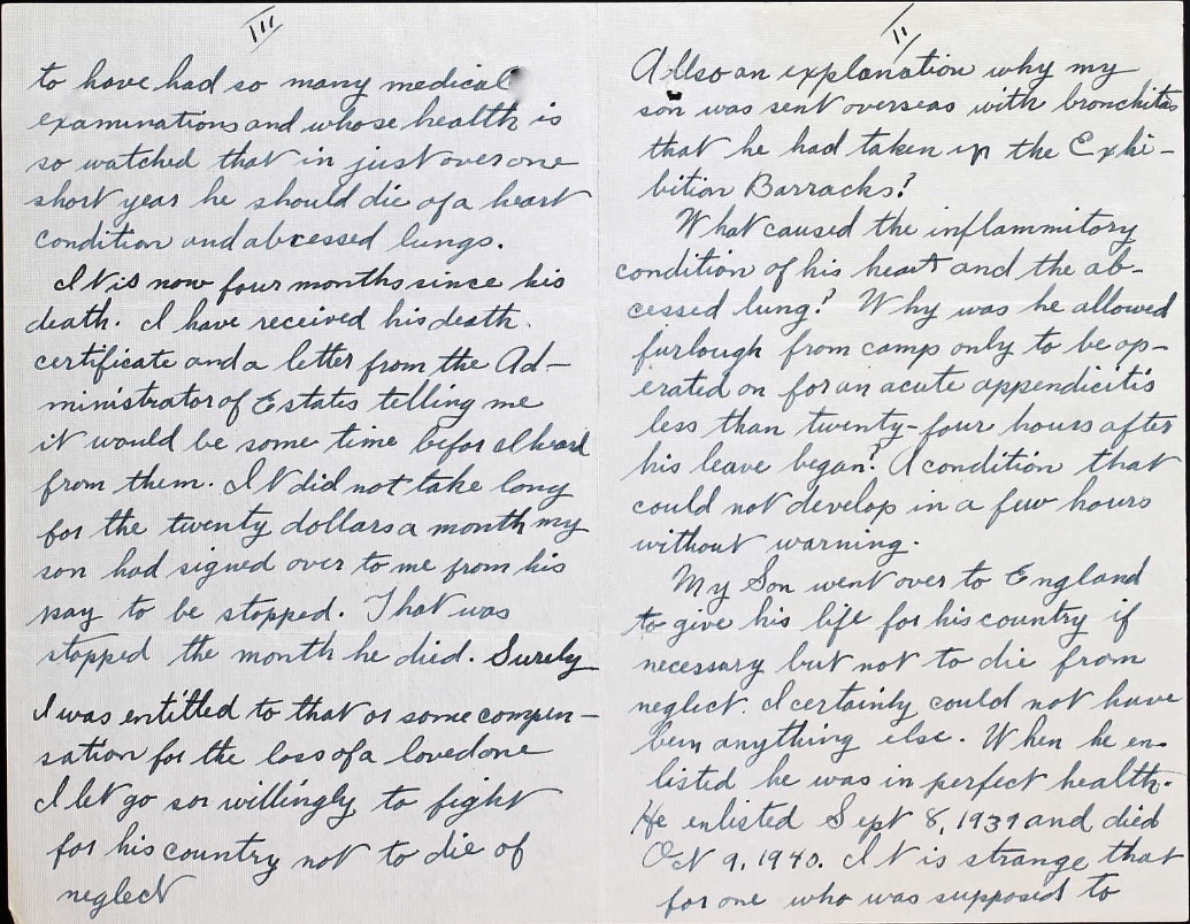 II
Allso an explanation why my
son was sent overseas with bronchitis
that he had taken in the Exhi-
bition Barracks?
What caused the inflammitory
condition of his heart and the ab-
cessed lung? Why was he allowed
furlough from camp only to be op-
erated on for an acute appendicitis
less than twenty-four hours after
his leave began? A condition that
could not develop in a few hours
without warning.
My Son went over to England
to give his life for his country if
necessary but not to die from
neglect. It certainly could not have
been anything else. When he en-
listed he was in perfect health.
He enlisted Sept 8, 1939 and died
Oct 9, 1940. It is strange that
for one who was supposed to
III
to have had so many medical
examinations and whose health is
so watched that in just over one
short year he should die of a heart
condition and abcessed lungs.
It is now four months since his
death. I have received his death
certificate and a letter from the Ad-
ministrator of Estates telling me
it would be some time befor I heard
from them. It did not take long
for the twenty dollars a month my
son had signed over to me from his
pay to be stopped. That was
stopped the month he died. Surely
I was entitled to that or some compen-
sation for the loss of a loved one
I let go so willingly to fight
for his country not to die of
neglect